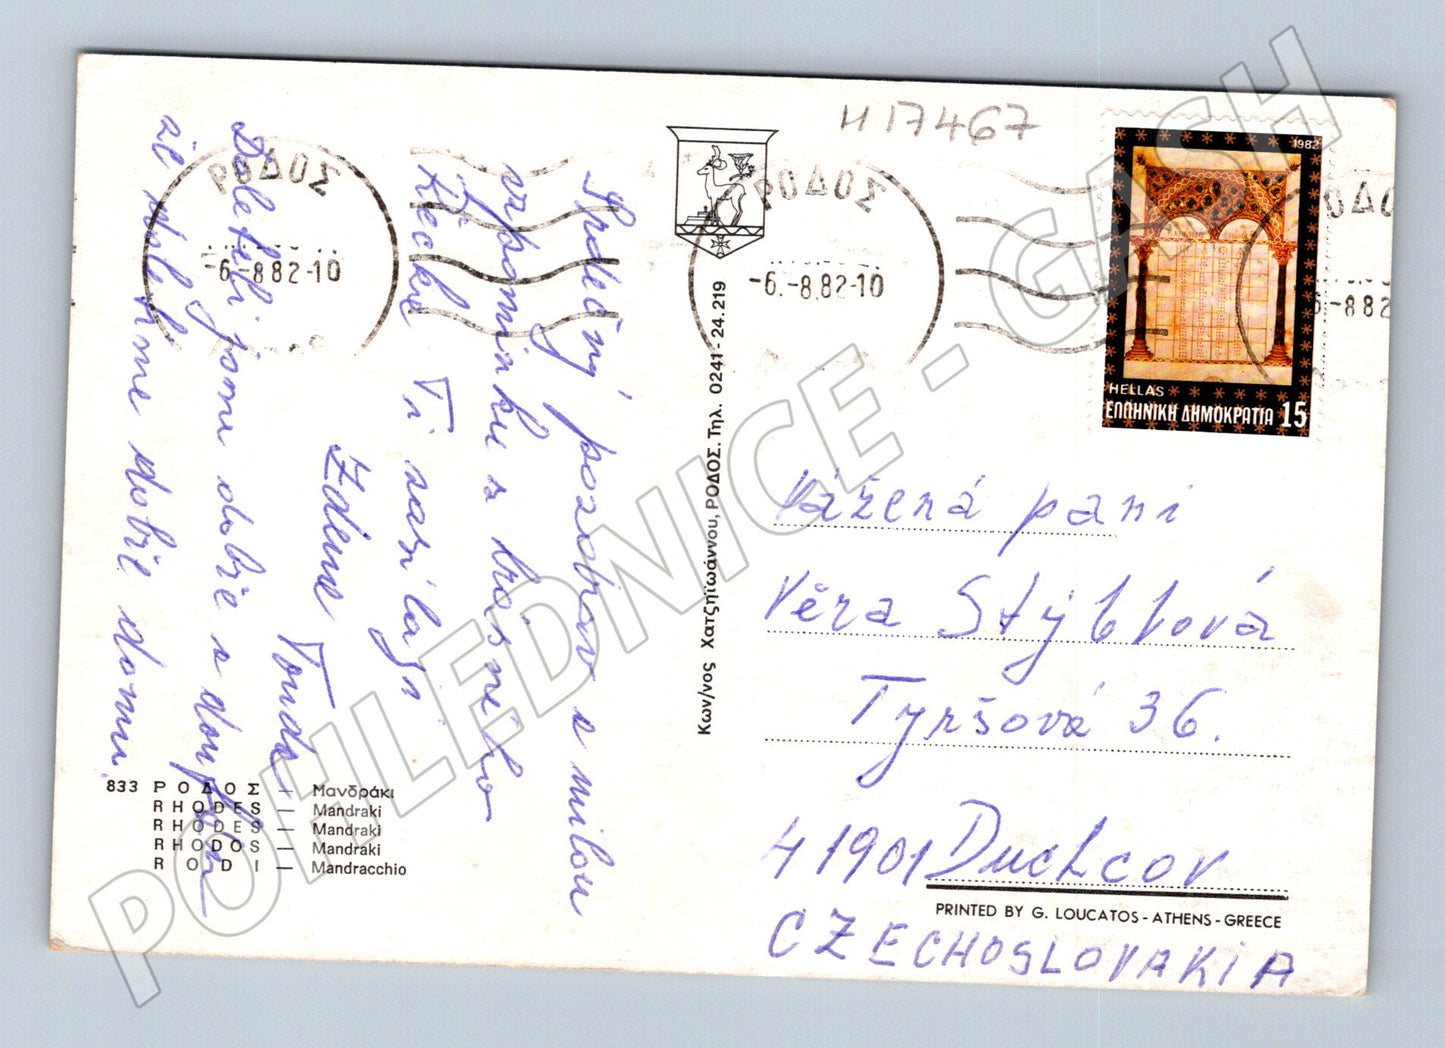 H17467
ΡΟΔΟΣ
-6.-8.82-10
ΡΟΔΟΣ
-6.-8.82-10
1982
HELLAS
ΕΛΛΗΝΙΚΗ ΔΗΜΟΚΡΑΤΙΑ 15
Srdečný pozdrav a milou
vzpomínku z krásného
Řecka Ti zasílají
Zdena Tonda
Doletěli jsme dobře a doufám
že doletíme dobře domu.
Κων/νος Χατζηϊωάννου, ΡΟΔΟΣ. Τηλ. 0241-24.219
Vážená paní
Věra Stýblová
Tyršová 36.
41901 Duchcov
CZECHOSLOVAKIA
833 ΡΟΔΟΣ — Μανδράκι
RHODES — Mandraki
RHODES — Mandraki
RHODOS — Mandraki
RODI — Mandracchio
PRINTED BY G. LOUCATOS - ATHENS - GREECE
POHLEDNICE - GASH